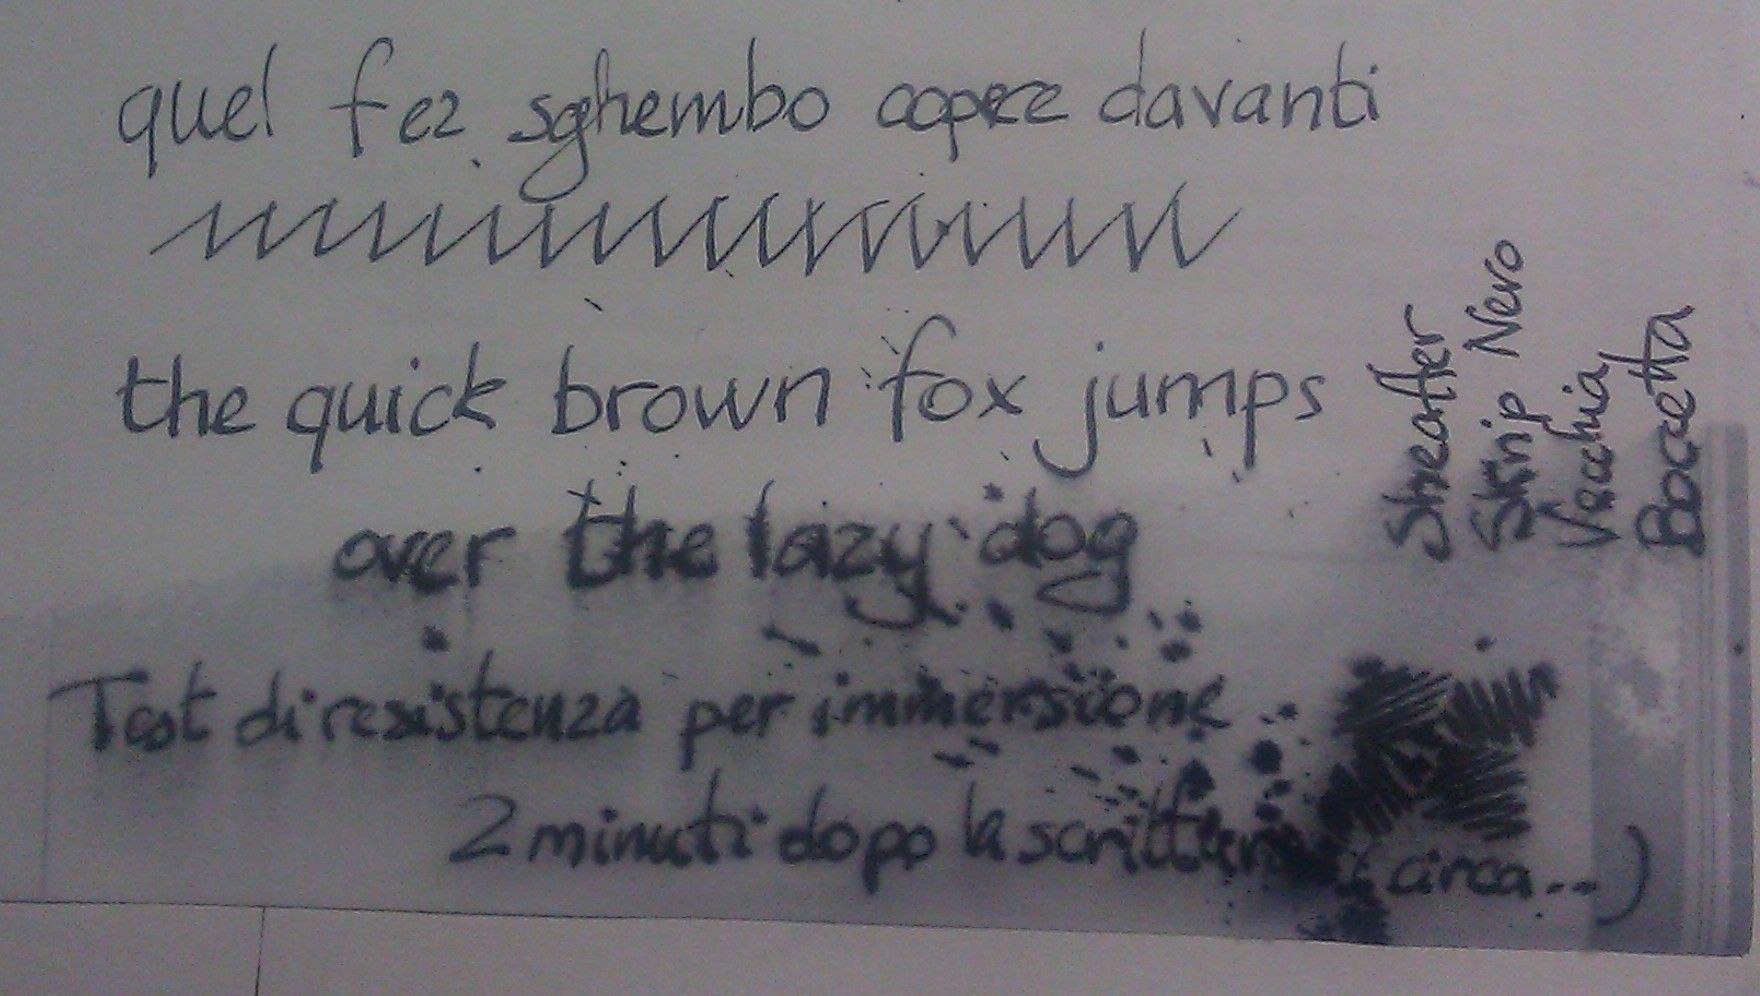 quel fez sghembo copre davanti
the quick brown fox jumps
over the lazy dog
Test di resistenza per immersione
2 minuti dopo la scrittura (circa...)
Sheaffer
Skrip Nero
Vecchia
Boccetta